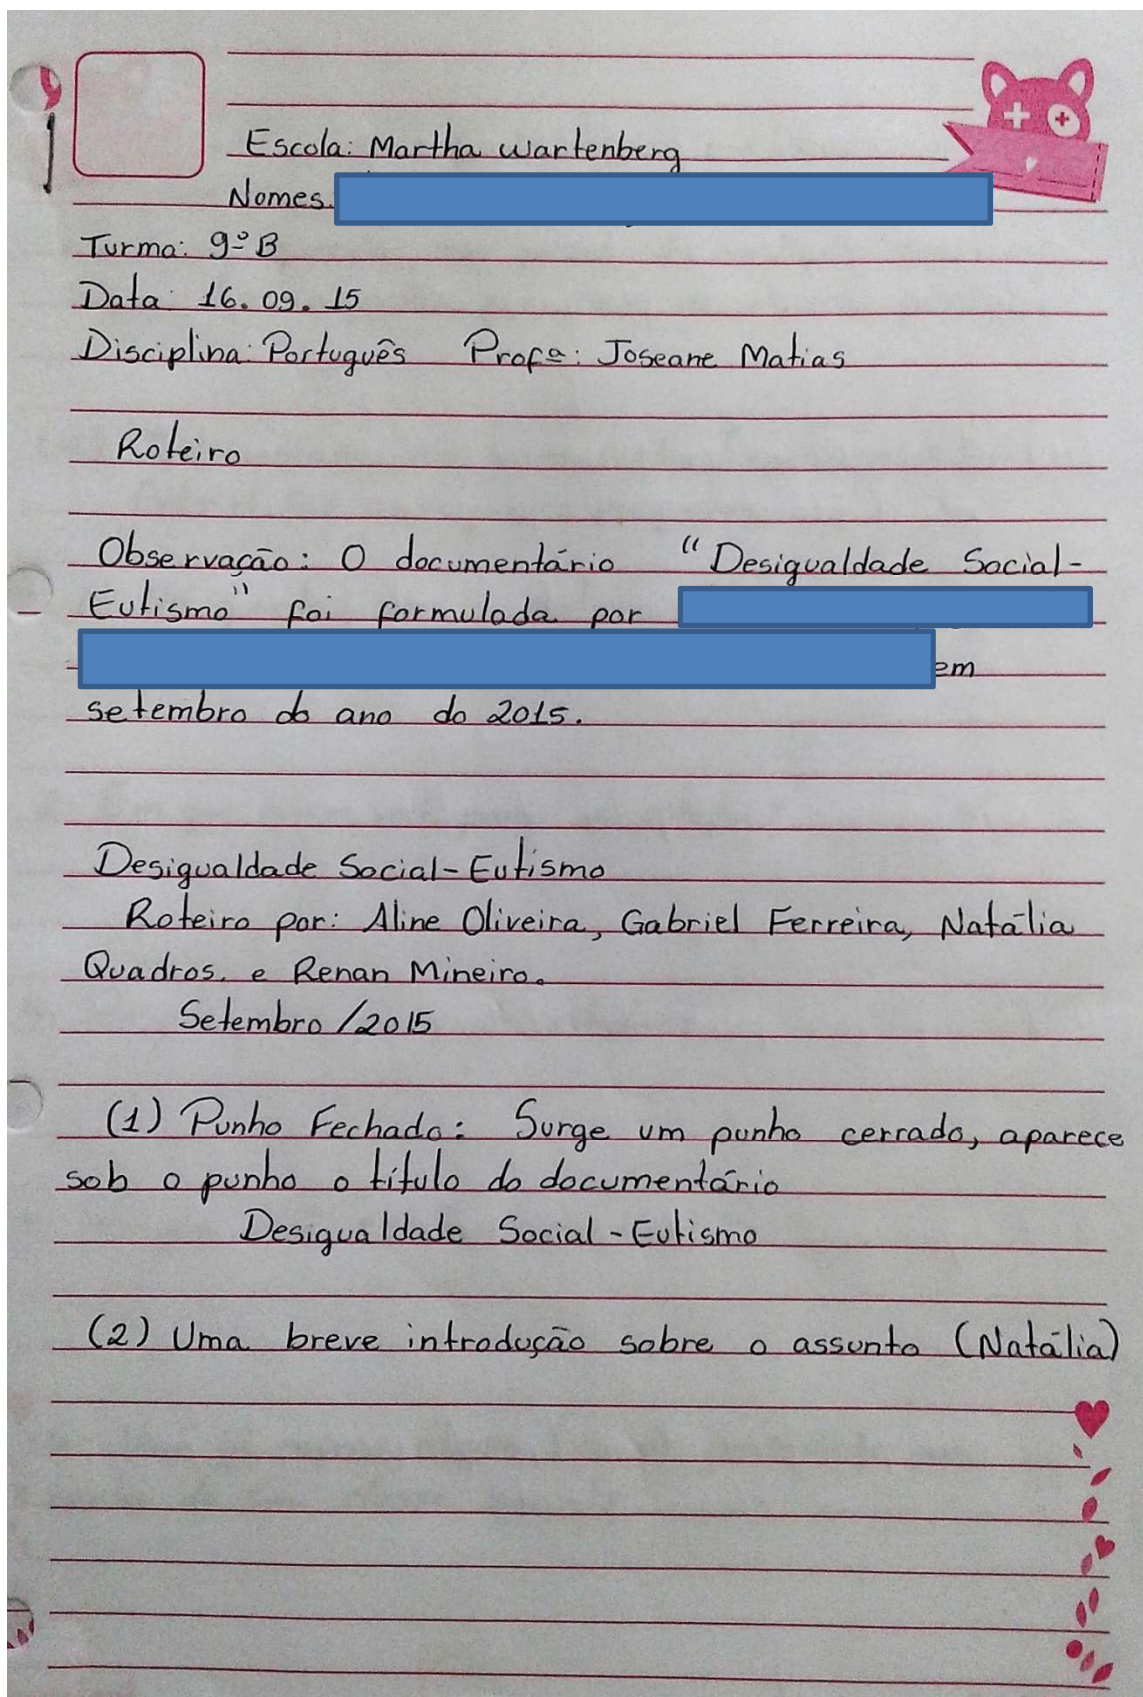 Escola: Martha Wartenberg
Nomes:
Turma: 9º B
Data: 16.09.15
Disciplina: Português Profª: Joseane Matias
Roteiro
Observação: O documentário "Desigualdade Social-
Eutismo" foi formulada por
em
setembro do ano do 2015.
Desigualdade Social-Eutismo
Roteiro por: Aline Oliveira, Gabriel Ferreira, Natália
Quadros, e Renan Mineiro.
Setembro/2015
(1) Punho Fechado: Surge um punho cerrado, aparece
sob o punho o título do documentário
Desigualdade Social-Eutismo
(2) Uma breve introdução sobre o assunto (Natália)